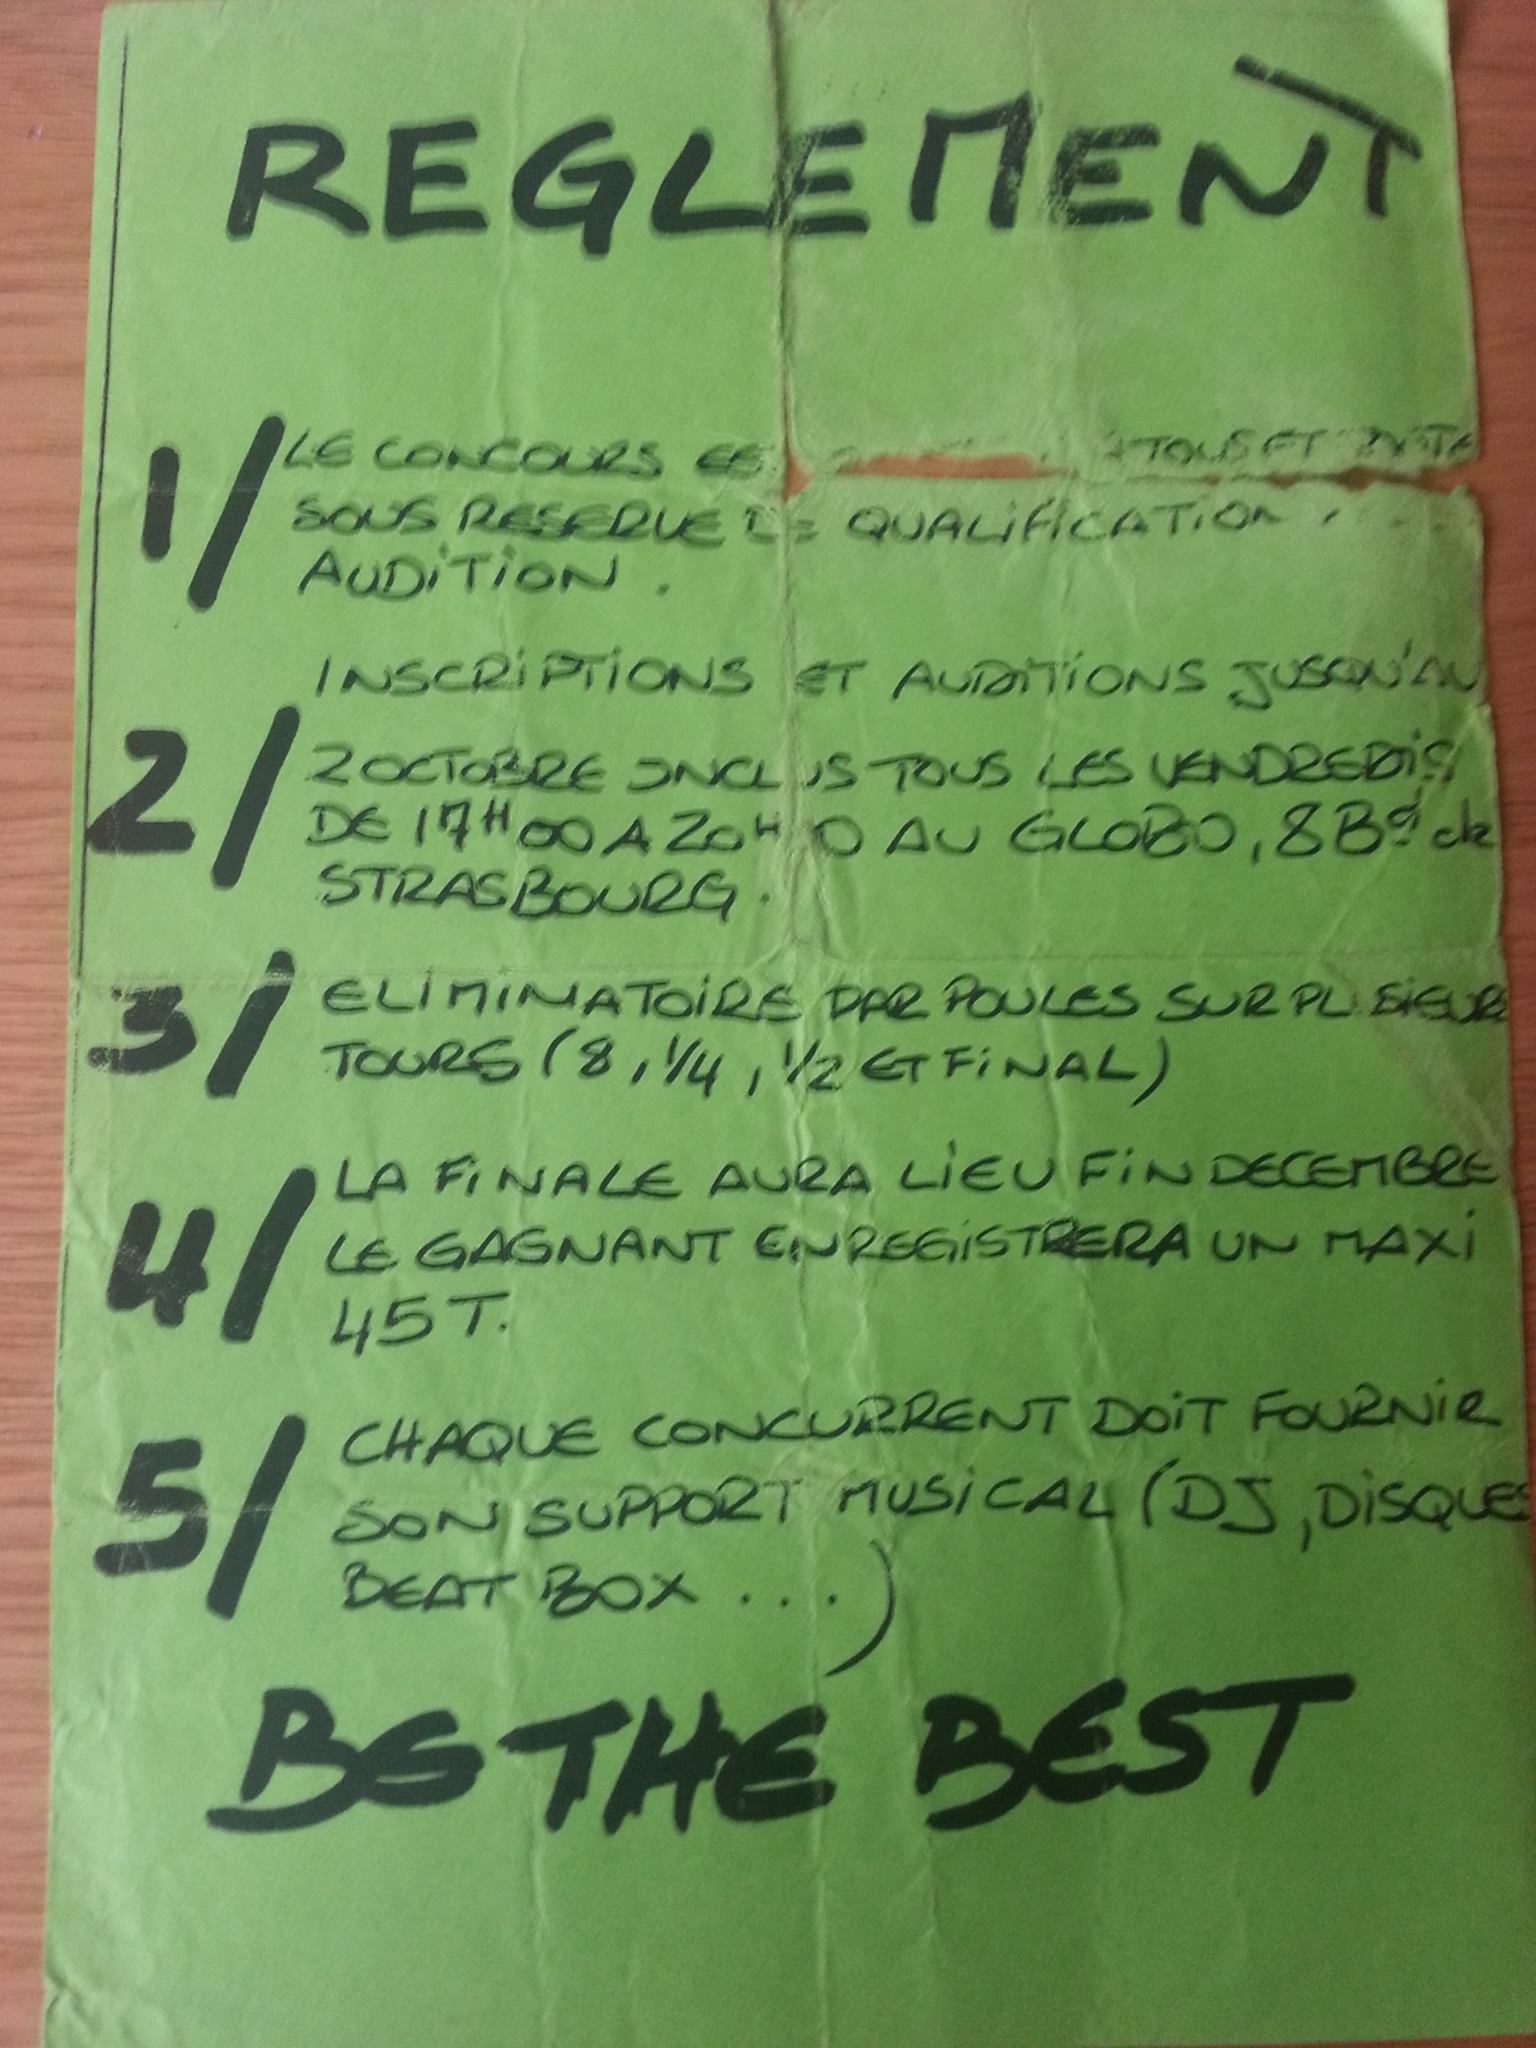 REGLEMENT
1/ LE CONCOURS ES A TOUS ET
SOUS RESERVE DE QUALIFICATION
AUDITION.
INSCRIPTIONS ET AUDITIONS JUSQU'AU
2/ 2 OCTOBRE INCLUS TOUS LES VENDREDIS
DE 17H00 A 20H 0 AU GLOBO, 8 Bd de
STRASBOURG.
3/ ELIMINATOIRE PAR POULES SUR PLUSIEURS
TOURS (8, 1/4, 1/2 ET FINAL)
4/ LA FINALE AURA LIEU FIN DECEMBRE
LE GAGNANT ENREGISTRERA UN MAXI
45T.
5/ CHAQUE CONCURRENT DOIT FOURNIR
SON SUPPORT MUSICAL (DJ, DISQUES
BEAT BOX ...)
BE THE BEST